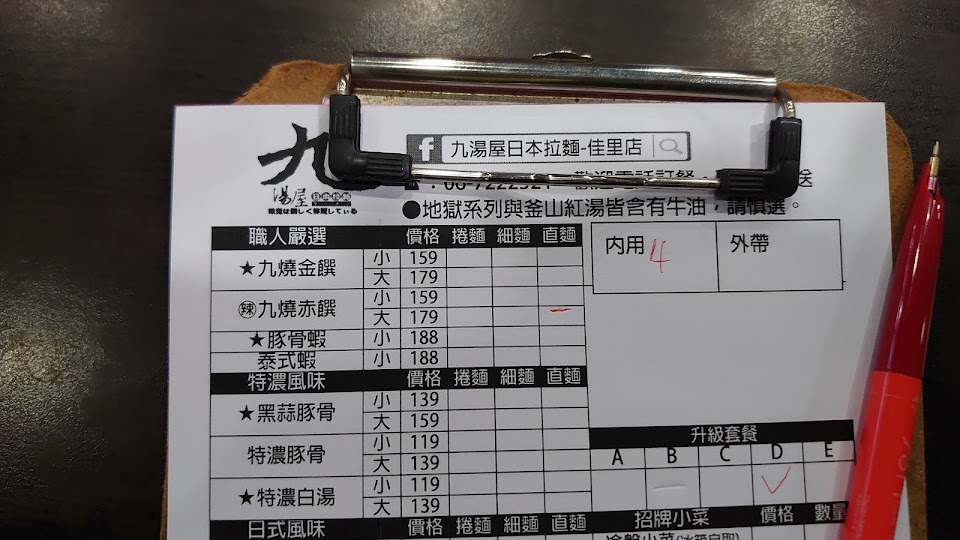 九
湯屋 日本拉麵
f 九湯屋日本拉麵-佳里店
●地獄系列與釜山紅湯皆含有牛油，請慎選。
職人嚴選 價格 捲麵 細麵 直麵
★九燒金饌 小 159
大 179
辣九燒赤饌 小 159
大 179
★豚骨蝦 小 188
泰式蝦 小 188
特濃風味 價格 捲麵 細麵 直麵
★黑蒜豚骨 小 139
大 159
特濃豚骨 小 119
大 139
★特濃白湯 小 119
大 139
日式風味 價格 捲麵 細麵 直麵
內用 4 外帶
升級套餐
A B C D E
招牌小菜 價格 數量